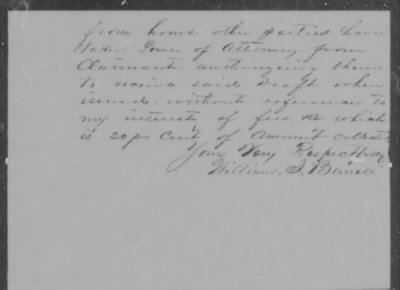 from home. other parties have
taken Power of Attorney from
Claimant authorizing them
to receive said Draft when
issued, without reference to
my interest of fee. &c which
is 20 pr Cent of Amount collected
Yours Very Respectfully
William. J.